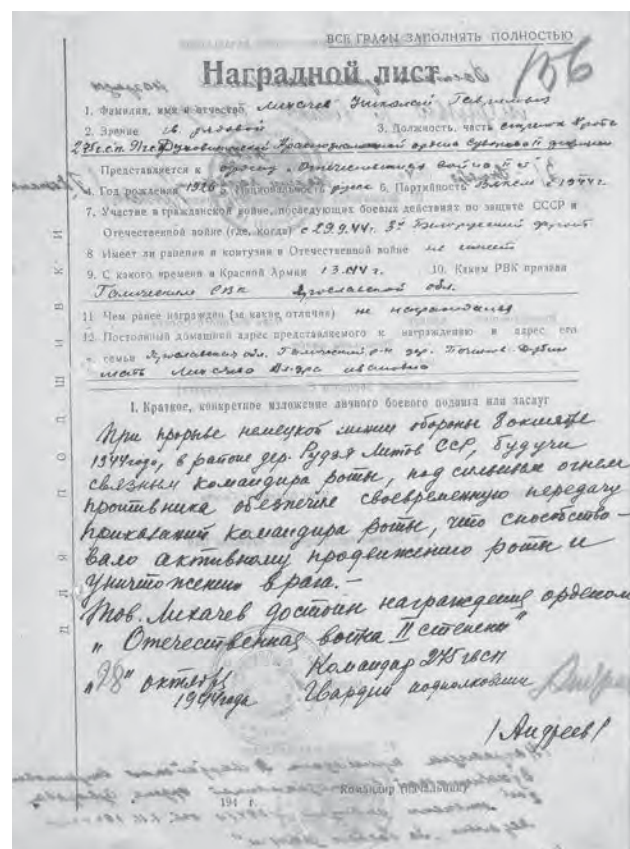 ВСЕ ГРАФЫ ЗАПОЛНЯТЬ ПОЛНОСТЬЮ
156
Наградной лист
1. Фамилия, имя и отчество Лихачев Николай Гаврилович
2. Звание гв. рядовой 3. Должность, часть стрелок
275 г.с.п. Духовщинской Краснознаменной ордена Суворова II дивизии
Представляется к ордену „Отечественная война II ст"
4. Год рождения 1926 5. Национальность русс 6. Партийность ВЛКСМ с 1944 г.
7. Участие в гражданской войне, последующих боевых действиях по защите СССР и
Отечественной войне (где, когда) с 29.9.44 г. 3й Белорусский фронт
8. Имеет ли ранения и контузии в Отечественной войне не имеет
9. С какого времени в Красной Армии 10. Каким РВК призван
Галичским РВК Ярославской обл.
11. Чем ранее награжден (за какие отличия) не награждался
12. Постоянный домашний адрес представляемого к награждению и адрес его
семьи Ярославская обл. Галичский р-н дер.
мать Лихачева ивановна
ДЛЯ ПОДШИВКИ
I. Краткое, конкретное изложение личного боевого подвига или заслуг
При прорыве немецкой линии обороны 8 октября
1944 года, в районе дер. Рудзя Литов ССР, будучи
связным командира роты, под сильным огнем
противника обеспечил своевременную передачу
приказаний командира роты, что способство-
вало активному продвижению роты и
уничтожению врага.-
Тов. Лихачев достоин награждения орденом
„Отечественная война II степени"
„28" октября Командир 275 гвсп
1944 года Гвардии подполковник
/Андреев/
Командир (Начальник)
194 г.